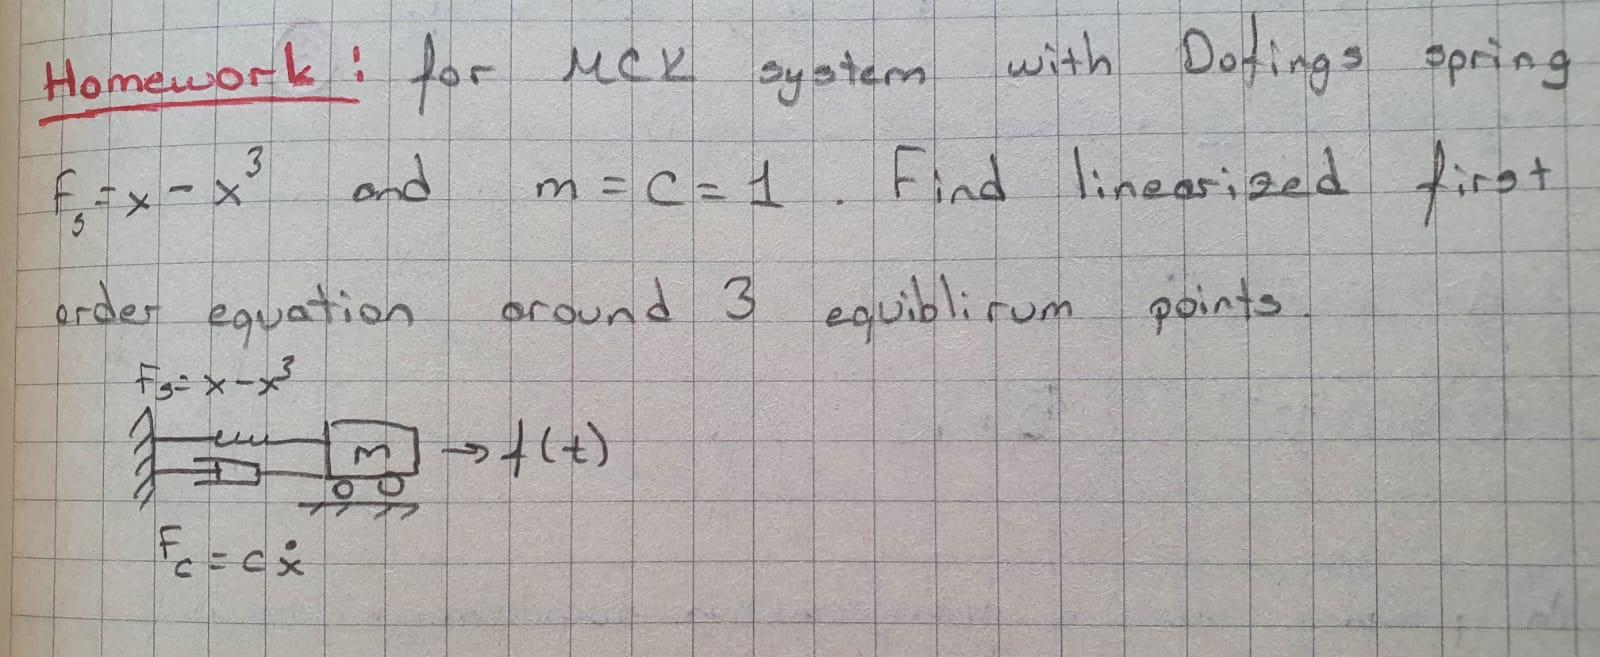 Homework: for MCK system with Dofings spring
Fs = x - x³ and m = c = 1. Find linearized first
order equation around 3 equiblirum points.
Fs = x - x³
m → f(t)
Fc = cẋ